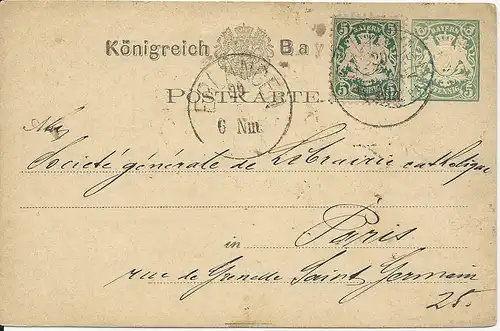 Königreich Bayern
BAYERN
5 5
5 5
PFENNIG
BAYERN
PFENNIG
ERLANGEN
29
6 Nm
POSTKARTE.
Société générale de Librairie catholique
in Paris
rue de Grenelle Saint Germain
25.